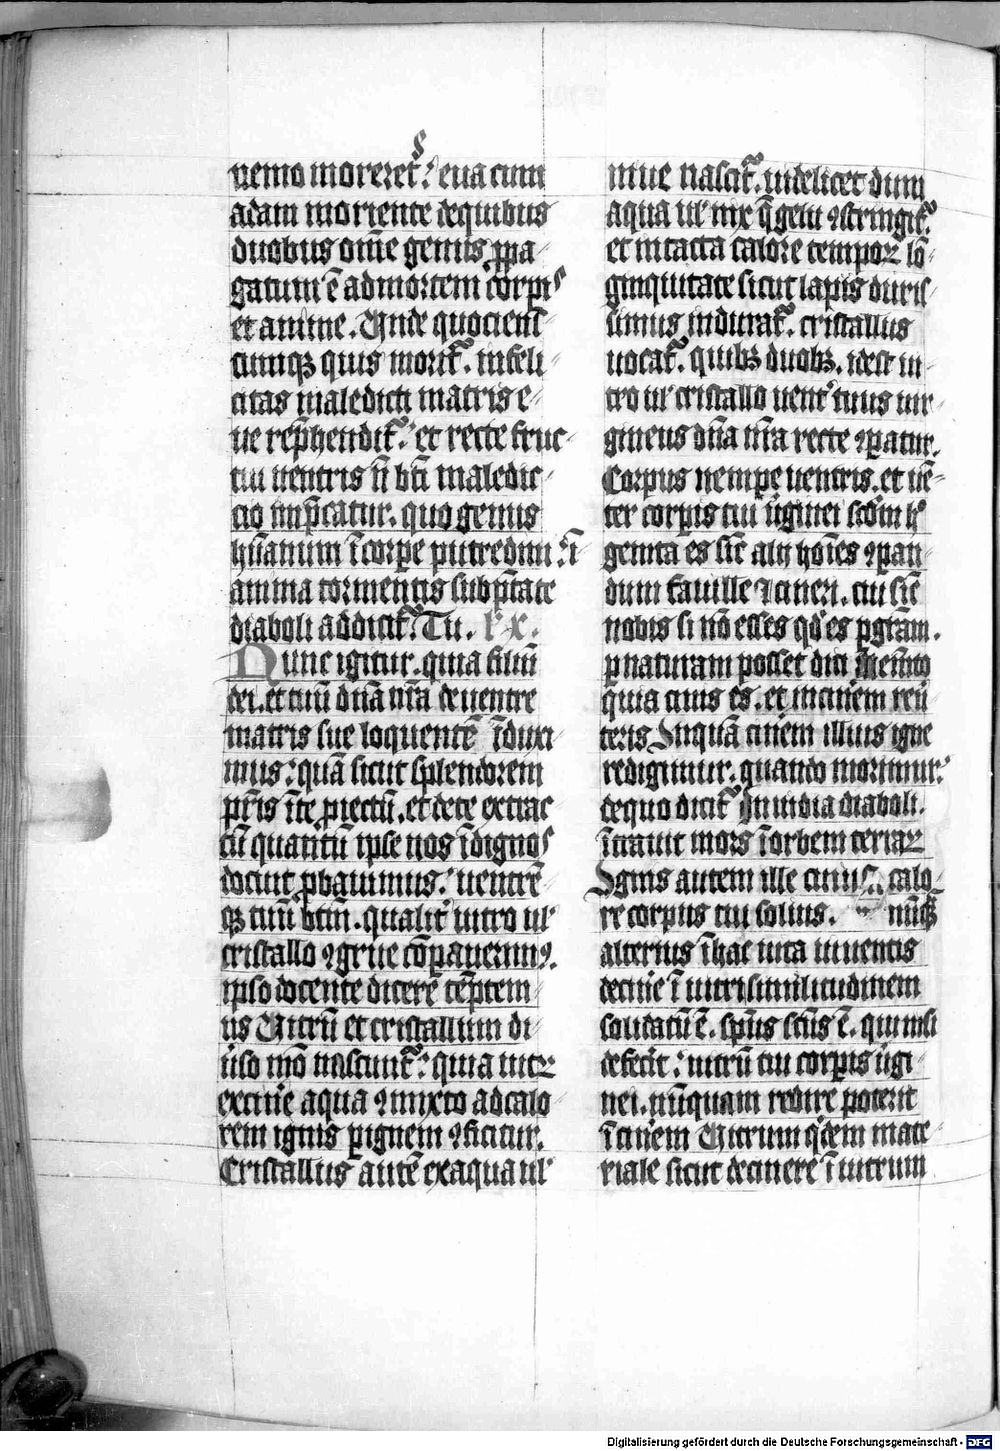 nemo moreret᷑. s; eua cum
adam moriente de quibus
duobus om̄e genus ꝓpa
gatum ē ad mortem corpis
et anime. Vnde quociens
cumqꝫ quis morit᷑. infeli
citas maledicti matris e
ue rep̄hendit᷑. et recte fruc
tui uentris n̄ bn̄ maledic
cio imp̄catur. quo genus
hūanum ī corpe putredini. ⁊ ī
anima tormentis subp̄tate
diaboli addicit᷑. Tu. l x.
Nunc igitur. quia filiū
dei. et tuū dn̄a nr̄a de uentre
matris sue loquentē īduxi
mus. quā sicut splendorem
pr̄is ī te ꝓiectū. et de te extrac
tū quantū ipse nos īdignos
docuit ꝓbauimus. uentrē
qꝫ tuū btm̄. qualit᷑ uitro ul᷑
cristallo ꝯgrue cōpauerimꝯ.
ipso docente dicere tēptem
us Vitrū et cristallum di
uiso mō noscunt᷑. quia uitꝝ
ex cinē aqua ꝯmixto ad calo
rem ignis p ignem ꝯficitur.
Cristallus autē ex aqua ul᷑
niue nascit᷑. uidelicet dum
aqua ul᷑ nix q̄ gelu ꝯstringit᷑.
et intacta calore tempoꝝ lō
ginquitate sicut lapis duris
simus indurat᷑. cristallus
uocat᷑. quibꝫ duobꝫ. idest ui
tro ul᷑ cristallo uent᷑ tuus uir
gineus dn̄a nr̄a recte ꝯpatur.
Corpus nempe uentris. et uē
ter corpis tui ūginei scdm h᷑
genita es sic̄ alij hōies ꝯpan
dum fauille ⁊ cineri. cui sic̄
nobis si nō esses qd᷑ es p gr̄am.
p naturam posset dici Memto
quia cinis es. et in cinem reū
teris In quā cinem illius igne
redigimur. quando morimur.
de quo dicit᷑ Inuidia diaboli.
ītrauit mors ī orbem terraꝝ
Ignis autem ille cuius calo
re corpus tui solius. nūqꝫ
alterius ī hac uita uiuentis
de cinē ī uitri similitudinem
solidatū ē. sp̄us scūs ē. qui nisi
defecit. uitrū tui corpis ūgi
nei. nūquam redire poterit
ī cinem Vitrum qd̄em mate
riale sicut de cinere ī uitrum